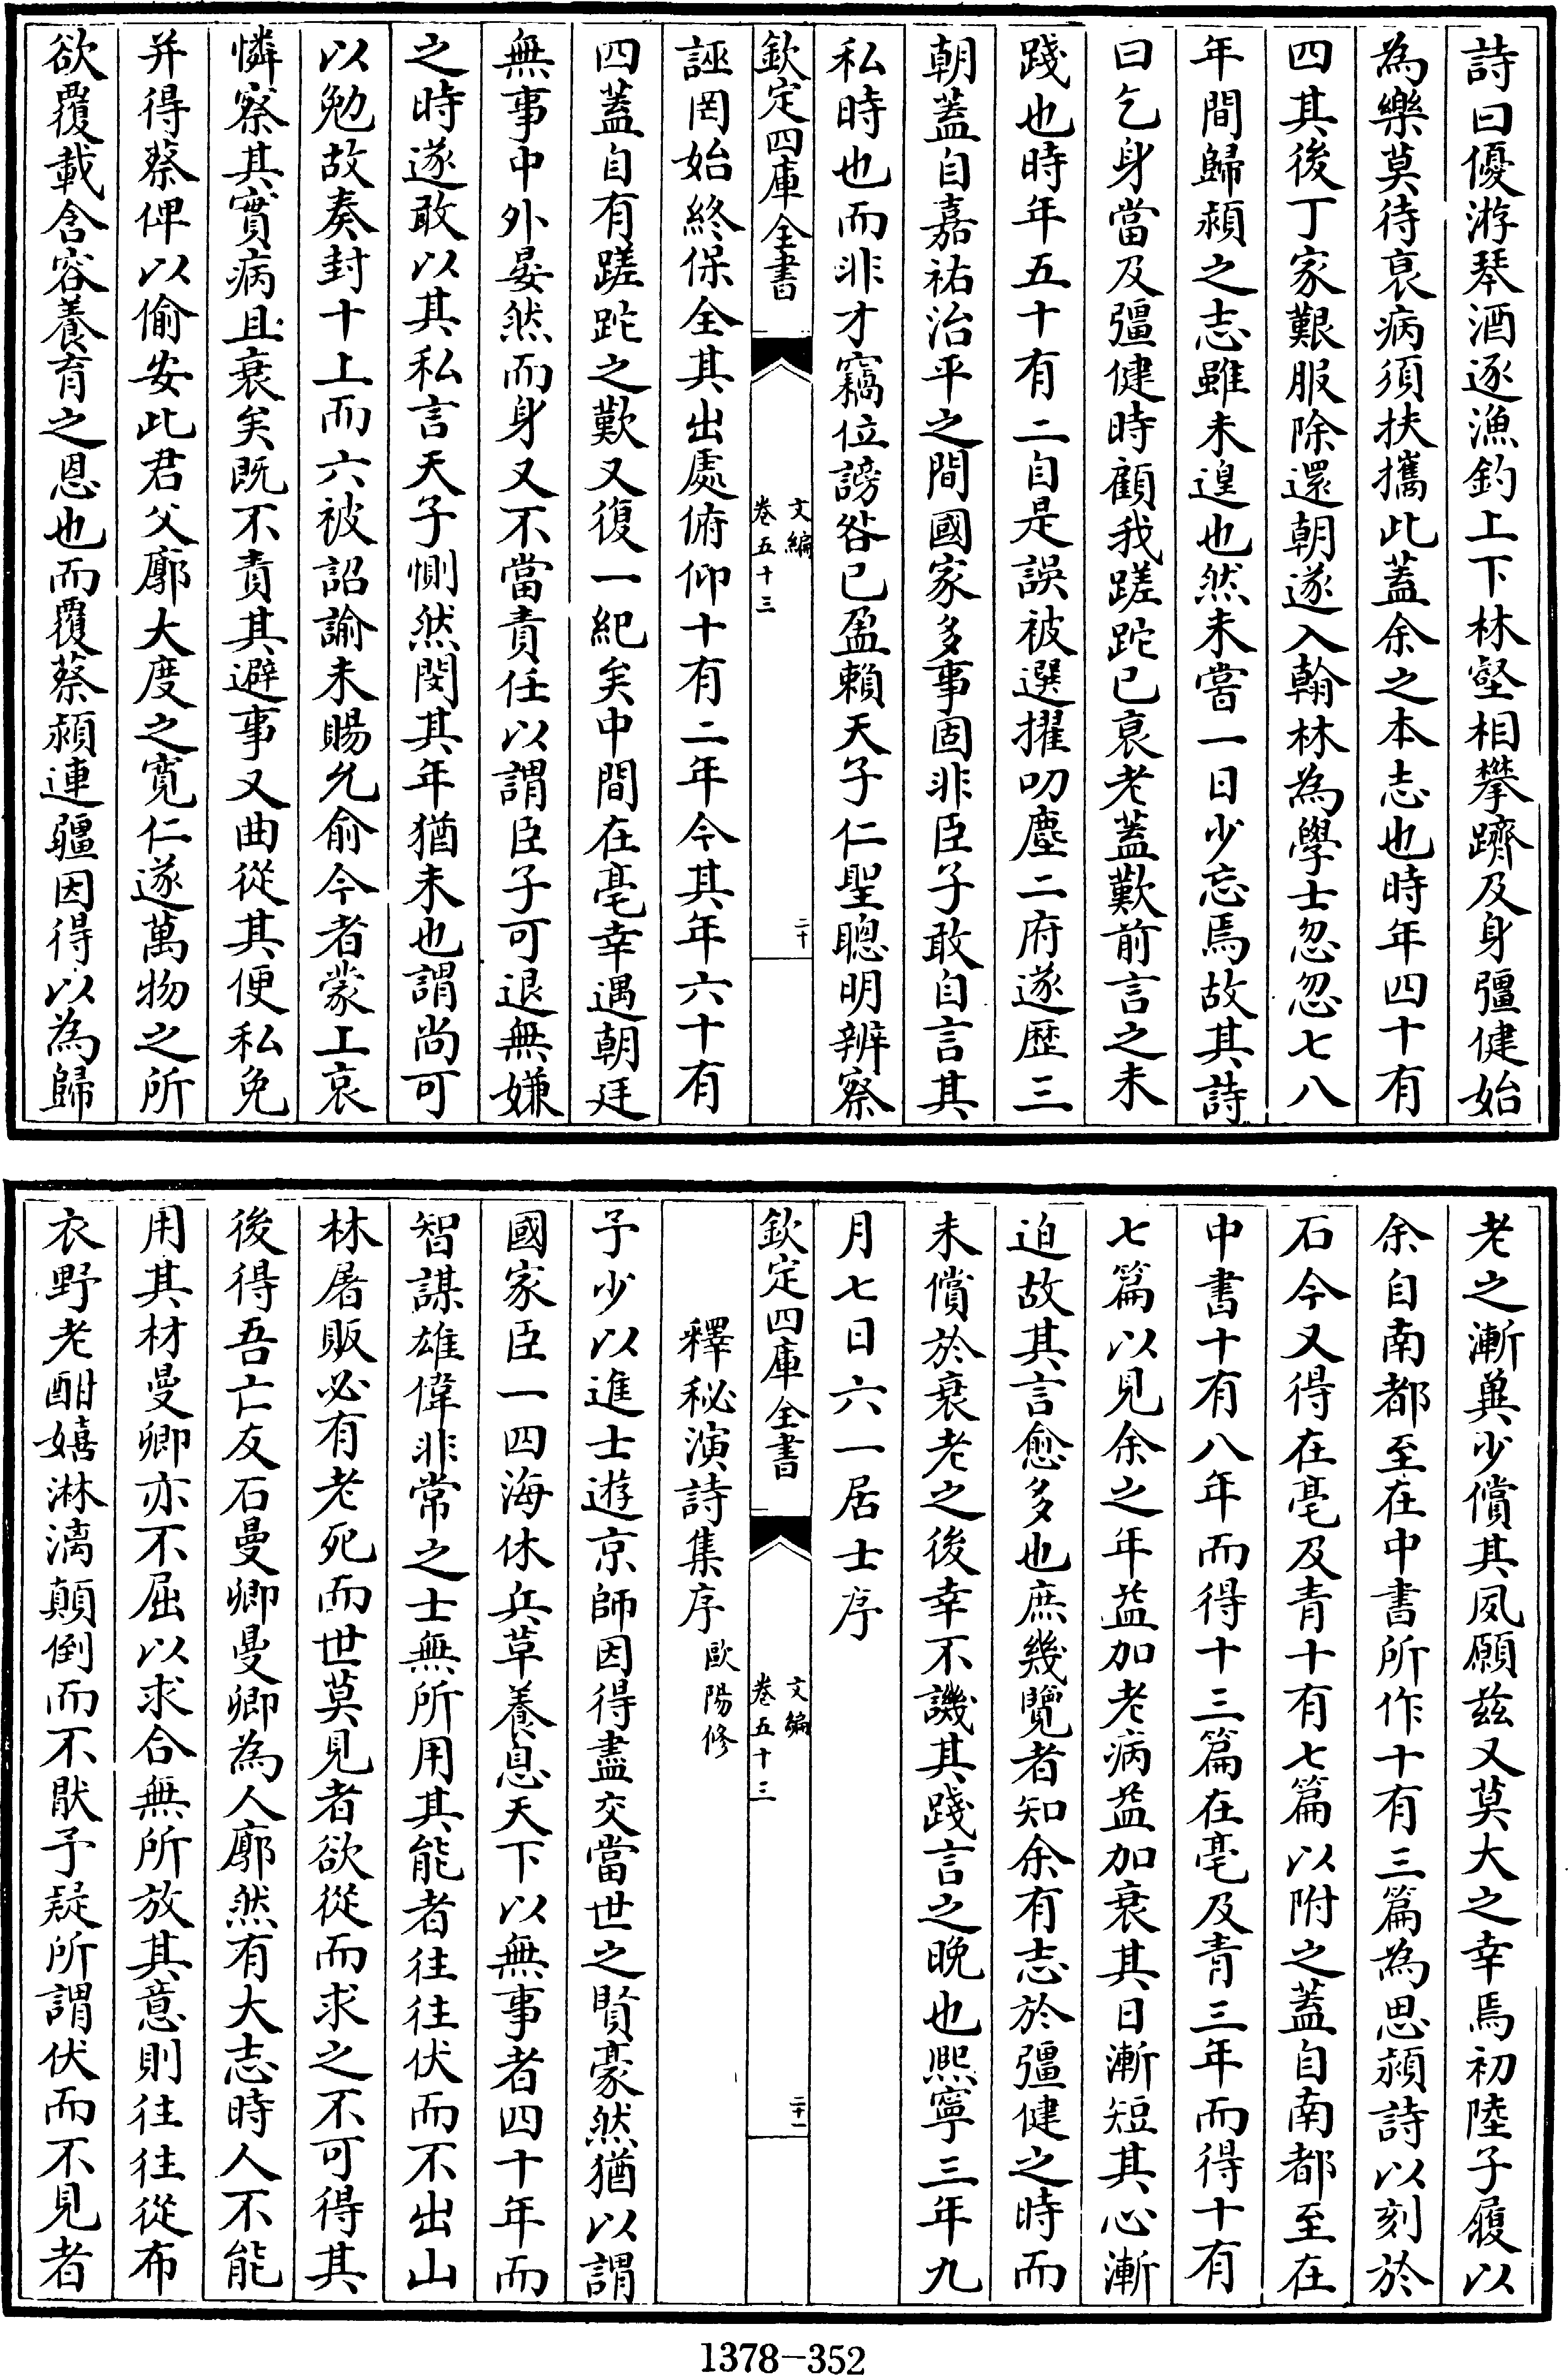 詩曰優游琴酒逐漁釣上下林壑相攀躋及身彊健始
為樂莫待衰病須扶攜此蓋余之本志也時年四十有
四其後丁家艱服除還朝遂入翰林為學士忽忽七八
年間歸潁之志雖未遑也然未嘗一日少忘焉故其詩
曰乞身當及彊健時顧我蹉跎已衰老蓋歎前言之未
踐也時年五十有二自是誤被選擢叨塵二府遂歷三
朝蓋自嘉祐治平之間國家多事固非臣子敢自言其
私時也而非才竊位謗咎已盈賴天子仁聖聰明辨察
欽定四庫全書
文編
卷五十三
二十
誣罔始終保全其出處俯仰十有二年今其年六十有
四蓋自有蹉跎之歎又復一紀矣中間在亳幸遇朝廷
無事中外晏然而身又不當責任以謂臣子可退無嫌
之時遂敢以其私言天子惻然閔其年猶未也謂尚可
以勉故奏封十上而六被詔諭未賜允俞今者蒙上哀
憐察其實病且衰矣既不責其避事又曲從其便私免
并得蔡俾以偷安此君父廓大度之寛仁遂萬物之所
欲覆載含容養育之恩也而覆蔡潁連疆因得以為歸
老之漸冀少償其夙願兹又莫大之幸焉初陸子履以
余自南都至在中書所作十有三篇為思潁詩以刻於
石今又得在亳及青十有七篇以附之蓋自南都至在
中書十有八年而得十三篇在亳及青三年而得十有
七篇以見余之年益加老病益加衰其日漸短其心漸
迫故其言愈多也庶幾覽者知余有志於彊健之時而
未償於衰老之後幸不譏其踐言之晚也熙寧三年九
月七日六一居士序
欽定四庫全書
文編
卷五十三
二十一
釋秘演詩集序 歐陽修
予少以進士遊京師因得盡交當世之賢豪然猶以謂
國家臣一四海休兵革養息天下以無事者四十年而
智謀雄偉非常之士無所用其能者往往伏而不出山
林屠販必有老死而世莫見者欲從而求之不可得其
後得吾亡友石曼卿曼卿為人廓然有大志時人不能
用其材曼卿亦不屈以求合無所放其意則往往從布
衣野老酣嬉淋漓顛倒而不猒予疑所謂伏而不見者
1378-352